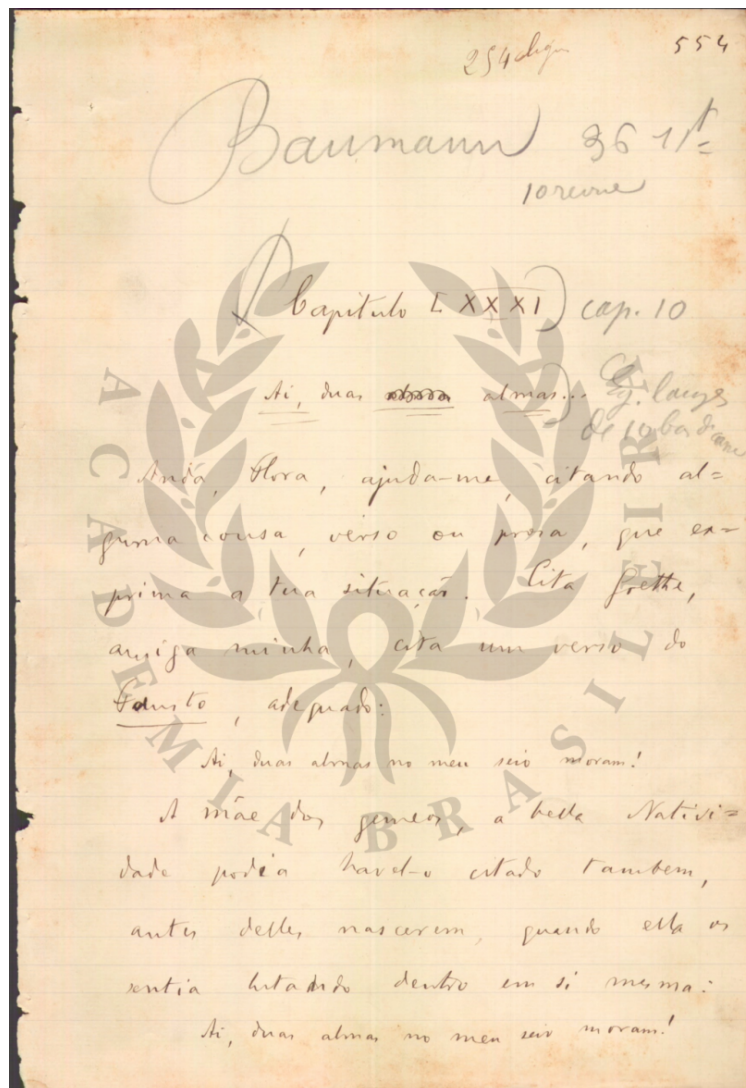 554
254
Baumann 36
10
Capitulo LXXXI cap. 10
Ai, duas almas...
Anda, Flora, ajuda-me, citando al=
guma cousa, verso ou prosa, que ex=
prima a tua situação. Cita Goethe,
amiga minha, cita um verso do
Fausto, adequado:
Ai, duas almas no meu seio moram!
A mãe dos gemeos, a bella Nativi=
dade podia havel-o citado tambem,
antes delles nascerem, quando ella os
sentia lutando dentro em si mesma:
Ai, duas almas no meu seio moram!
ACADEMIA BRASILEIRA